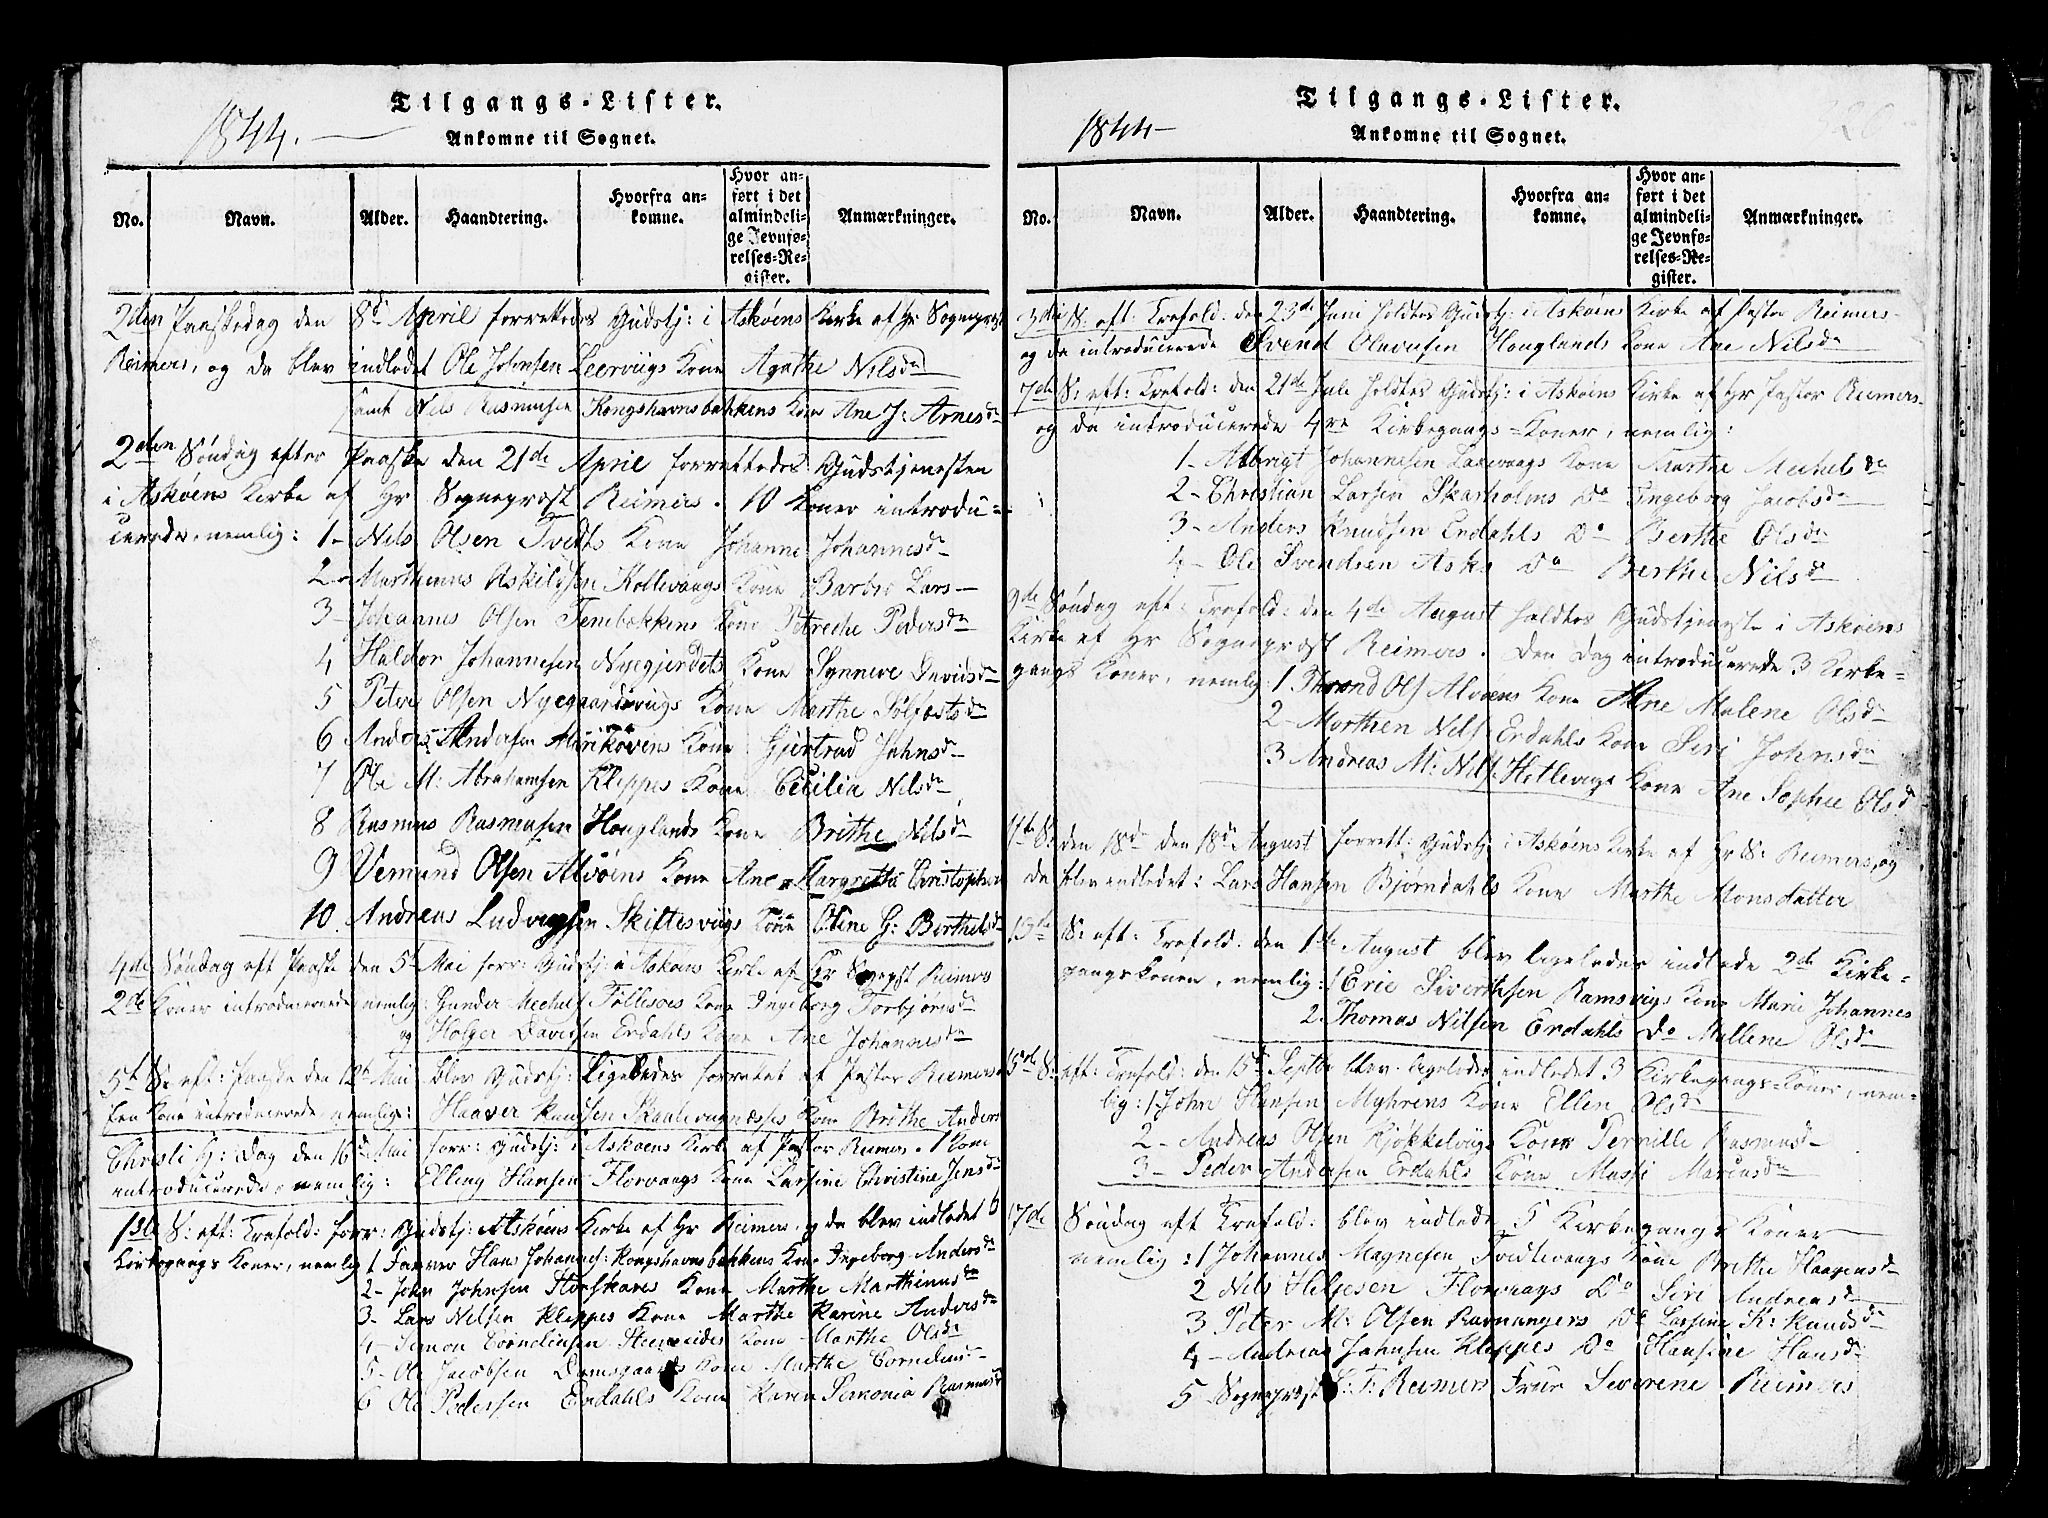 Tilgangs-Lister.
1844.
Ankomne til Sognet.
No.
Navn.
Alder.
Haandtering.
Hvorfra an-
komne.
Hvor an-
ført i det
almindeli-
ge Jevnfø-
relses-Re-
gister.
Anmærkninger.
2den Paaskedag den 8de April forrettedes Gudstj: i Askøens Kirke af Hr Sognepræst
Reimers, og da blev indledet Ole Johnsen Leervigs Kone Agathe Nilsdr
samt Nils Rasmusen Kongshavnsbakkens Kone Ane J: Arnesdr
2den Søndag efter Paaske den 21de April forrettedes Gudstjenesten
i Askøens Kirke af Hr Sognepræst Reimers. 10 Koner introdu-
cerede, nemlig: 1- Nils Olsen Tvedts Kone Johanne Johannesdr
2- Marthinus Askildsen Kollevaags Kone Barbro Lars-
3- Johannes Olsen Tenebækkens Kone Petreche Pedersdr
4 Haldor Johannesen Nyegjerdets Kone Synneve Davidsdr
5 Peter Olsen Nyegaardsviigs Kone Marthe Solfæstsdr
6 Anders Andersen Kone Gjertrud Johnsdr
7 Ole M: Abrahamsen Kleppes Kone Cicilia Nilsdr
8 Rasmus Rasmusen Houglands Kone Brithe Nilsdr
9 Vemund Olsen Alvøens Kone Ane Margrethe Christopher
10. Andreas Ludvigsen Skiftesviigs Kone Oline G: Berthelsdr
4de Søndag eft Paaske den 5te Mai forr: Gudstj: i Askøens Kirke af Hr Sognepst Reimers
2de Koner introducerede nemlig: Gunder Michels Follesøes Kone Ingeborg Torbjørnsdr
og Holger Davidsen Erdahls Kone Ane Johannesdr
5te S: eft: Paaske den 12te Mai blev Gudstj: ligeledes forrettet af Pastor Reimers
Een Kone introducerede, nemlig: Haaver Knudsen Skaalevignæsses Kone Brithe Anders
Christi H: Dag den 16de Mai forr: Gudstj: i Askøens Kirke af Pastor Reimers. 1 Kone
introducerede, nemlig: Elling Hansen Florvaags Kone Larsine Christine Jensdr
1ste S: eft: Trefold: forr: Gudstj: Askøens Kirke af Hr Reimers, og da blev indledet 6
Kirkegangs Koner, nemlig 1 Farver Hans Johannes: Kongshavnsbakkens Kone Ingeborg Andersdr
2- John Johnsen Storskares Kone Marthe Marthinusdr
3- Lars Nilsen Kleppes Kone Marthe Karine Andersdr
4- Simon Cornelius en Steensides Kone Marthe Olsdr
5- Ole Jacobsen Damsgaards Kone Marthe Cornelius-
6 Ole Pedersen Erdahls Kone Karen Semonia Rasmusdr
Tilgangs-Lister.
1844-
Ankomne til Sognet.
No.
Navn.
Alder.
Haandtering.
Hvorfra an-
komne.
Hvor an-
ført i det
almindeli-
ge Jevnfø-
relses-Re-
gister.
Anmærkninger.
3die S: eft: Trefold: den 23de Juni holdtes Gudstj: i Askøens Kirke af Pastor Reimers-
og da introducerede Svend Olavesen Houglands Kone Ane Nilsdr
7de S: eft: Trefold: den 21de Juli holdtes Gudstj: i Askøens Kirke af Hr Pastor Reimers-
og da introducerede 4re Kirkegangs-Koner, nemlig:
1- Albrigt Johannesen Laxevaags Kone Marthe Michelsdr
2- Christian Larsen Skarholms Do Ingeborg Jacobsdr
3- Anders Knudsen Erdahls Do Berthe Olsdr
4- Ole Svendsen Aske Do Berthe Nilsdr
9de Søndag eft: Trefold: den 4de August holdtes Gudstjeneste i Askøens
Kirke af Hr Sognepræst Reimers. Den Dag introducerede 3 Kirke-
gangs Koner, nemlig: 1 Thrond Ols Alvøens Kone Ane Malene Olsdr
2- Morthen Nils Erdahls Kone Siri Johnsdr
3 Andreas M: Nils: Hetlevigs Kone Ane Sophie Olsdr
11te S: den 18de den 18de August forrett: Gudstj: i Askøens Kirke af Hr S: Reimers, og
da blev indledet: Lars Hansen Bjørndahls Kone Marthe Monsdatter
13te S: eft: Trefold: den 1te August blev ligeledes indledt 2de Kirke-
gangskoner, nemlig: 1 Eric Siverthsen Ramsvigs Kone Marie Johannes
2. Thomas Nilsen Erdahls Do Mallene Olsdr
15de S: eft: Trefold: den 15de Septbr blev ligeledes indledet 3 Kirkegangs-Koner, nem-
lig: 1. John Hansen Myhrens Kone Ellen Olsdr
2- Andreas Olsen Kjøkkelviigs Kone Pernille Rasmusdr
3- Peder Andersen Erdahls Kone Massi Mariusdr
17de Søndag eft Trefold: blev indledt 5 Kirkegangs Koner
nemlig: 1 Johannes Magnesen Tvedtevaags Kone Brithe Haagensdr
2 Nils Helgesen Florvaags Do Siri Andreasdr
3 Peter M: Olsen Ravnangers Do Larsine K: Knudsdr
4- Andreas Johnsen Kleppes Do Hansine Hansdr
5 Sognepræst C: F: Reimers Frue Severene Reimers